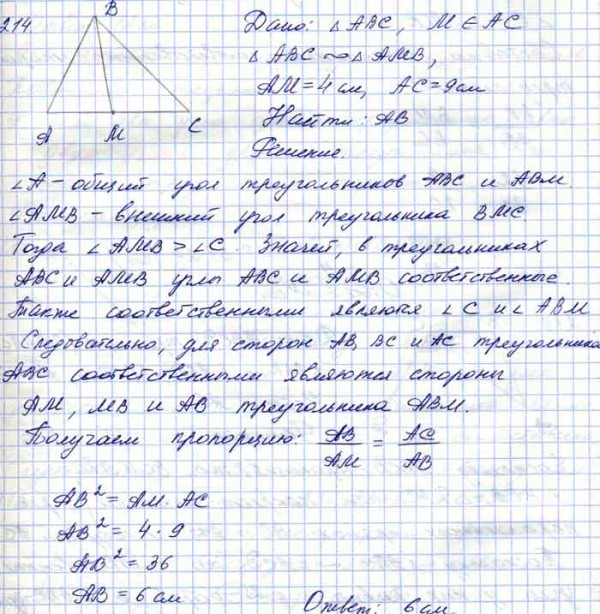 214.
B
A M C
Дано: △ABC, M ∈ AC
△ABC ∼ △AMB,
AM = 4 см, AC = 9 см
Найти: AB
Решение.
∠A – общий угол треугольников ABC и ABM.
∠AMB – внешний угол треугольника BMC
Тогда ∠AMB > ∠C. Значит, в треугольниках
ABC и AMB углы ABC и AMB соответственные.
Также соответственными являются ∠C и ∠ABM
Следовательно, для сторон AB, BC и AC треугольника
ABC соответственными являются стороны
AM, MB и AB треугольника ABM.
Получаем пропорцию: AB/AM = AC/AB
AB² = AM · AC
AB² = 4 · 9
AB² = 36
AB = 6 см
Ответ: 6 см